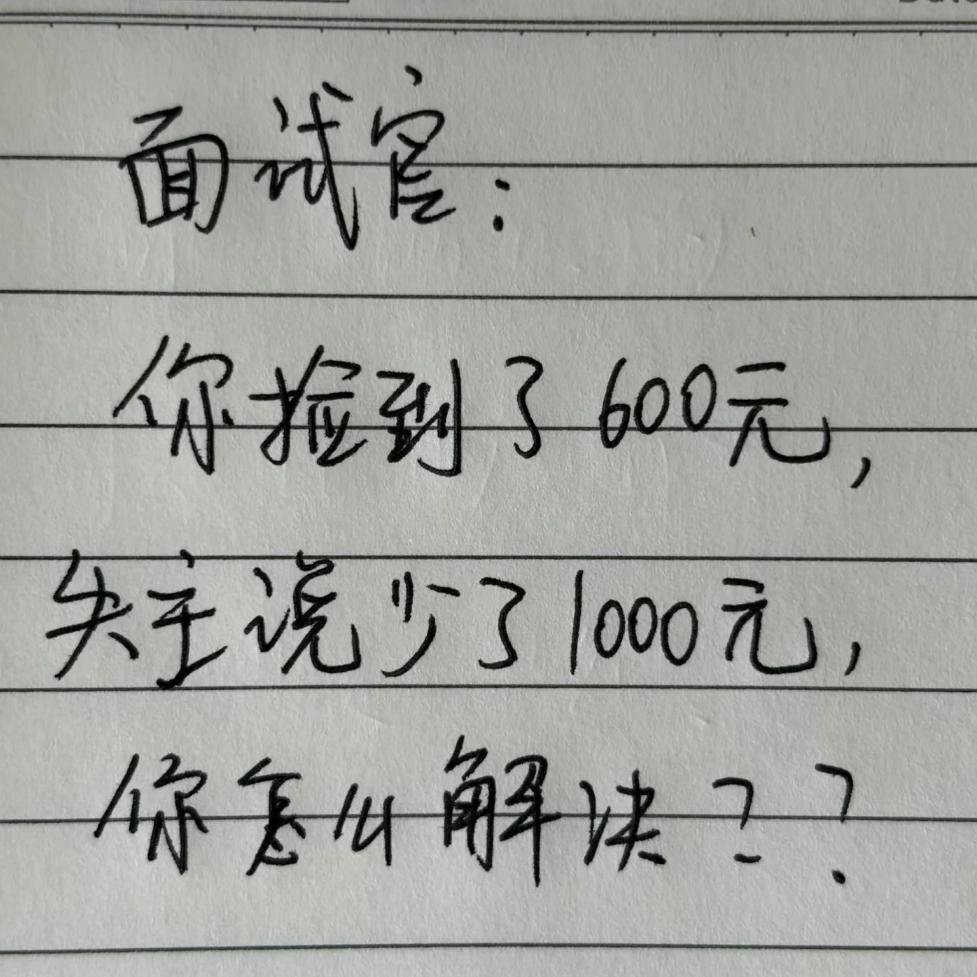 面试官：
你捡到了600元，
失主说少了1000元，
你怎么解决？？